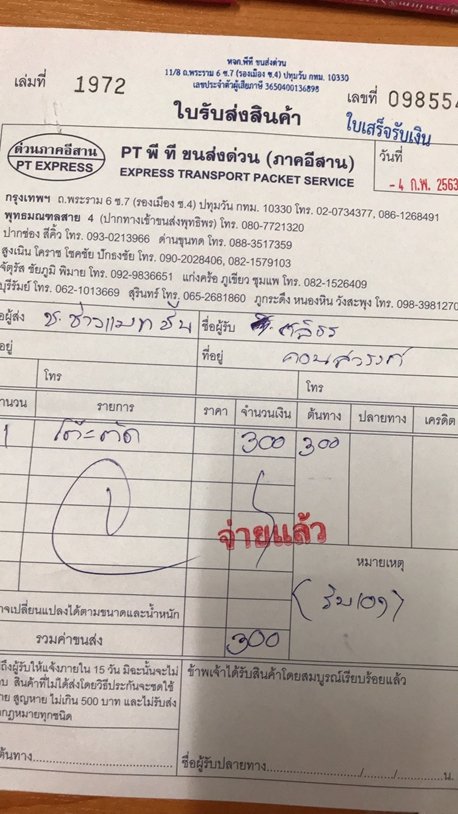 หจก.พีที ขนส่งด่วน
11/8 ถ.พระราม 6 ซ.7 (รองเมือง ซ.4) ปทุมวัน กทม. 10330
เลขประจำตัวผู้เสียภาษี 3650400136898
เล่มที่ 1972
เลขที่ 098554
ใบรับส่งสินค้า
ใบเสร็จรับเงิน
ด่วนภาคอีสาน
PT EXPRESS
PT พี ที ขนส่งด่วน (ภาคอีสาน)
EXPRESS TRANSPORT PACKET SERVICE
วันที่
- 4 ก.พ. 2563
กรุงเทพฯ ถ.พระราม 6 ซ.7 (รองเมือง ซ.4) ปทุมวัน กทม. 10330 โทร. 02-0734377, 086-1268491
พุทธมณฑลสาย 4 (ปากทางเข้าขนส่งพุทธิพร) โทร. 080-7721320
ปากช่อง สีคิ้ว โทร. 093-0213966 ด่านขุนทด โทร. 088-3517359
สูงเนิน โคราช โชคชัย ปักธงชัย โทร. 090-2028406, 082-1579103
จัตุรัส ชัยภูมิ พิมาย โทร. 092-9836651 แก่งคร้อ ภูเขียว ชุมแพ โทร. 082-1526409
บุรีรัมย์ โทร. 062-1013669 สุรินทร์ โทร. 065-2681860 ภูกระดึง หนองหิน วังสะพุง โทร. 098-3981270
ผู้ส่ง ชื่อผู้รับ
อยู่ ที่อยู่ คอนสวรรค์
โทร โทร
จำนวน รายการ ราคา จำนวนเงิน ต้นทาง ปลายทาง เครดิต
1 โต๊ะตัด 300 300
จ่ายแล้ว
หมายเหตุ
(รับเอง)
อาจเปลี่ยนแปลงได้ตามขนาดและน้ำหนัก
รวมค่าขนส่ง 300
ถึงผู้รับให้แจ้งภายใน 15 วัน มิฉะนั้นจะไม่
สินค้าที่ไม่ได้ส่งโดยวิธีประกันจะชดใช้
สูญหาย ไม่เกิน 500 บาท และไม่รับส่ง
กฎหมายทุกชนิด
ข้าพเจ้าได้รับสินค้าโดยสมบูรณ์เรียบร้อยแล้ว
ต้นทาง
ชื่อผู้รับปลายทาง / / น.